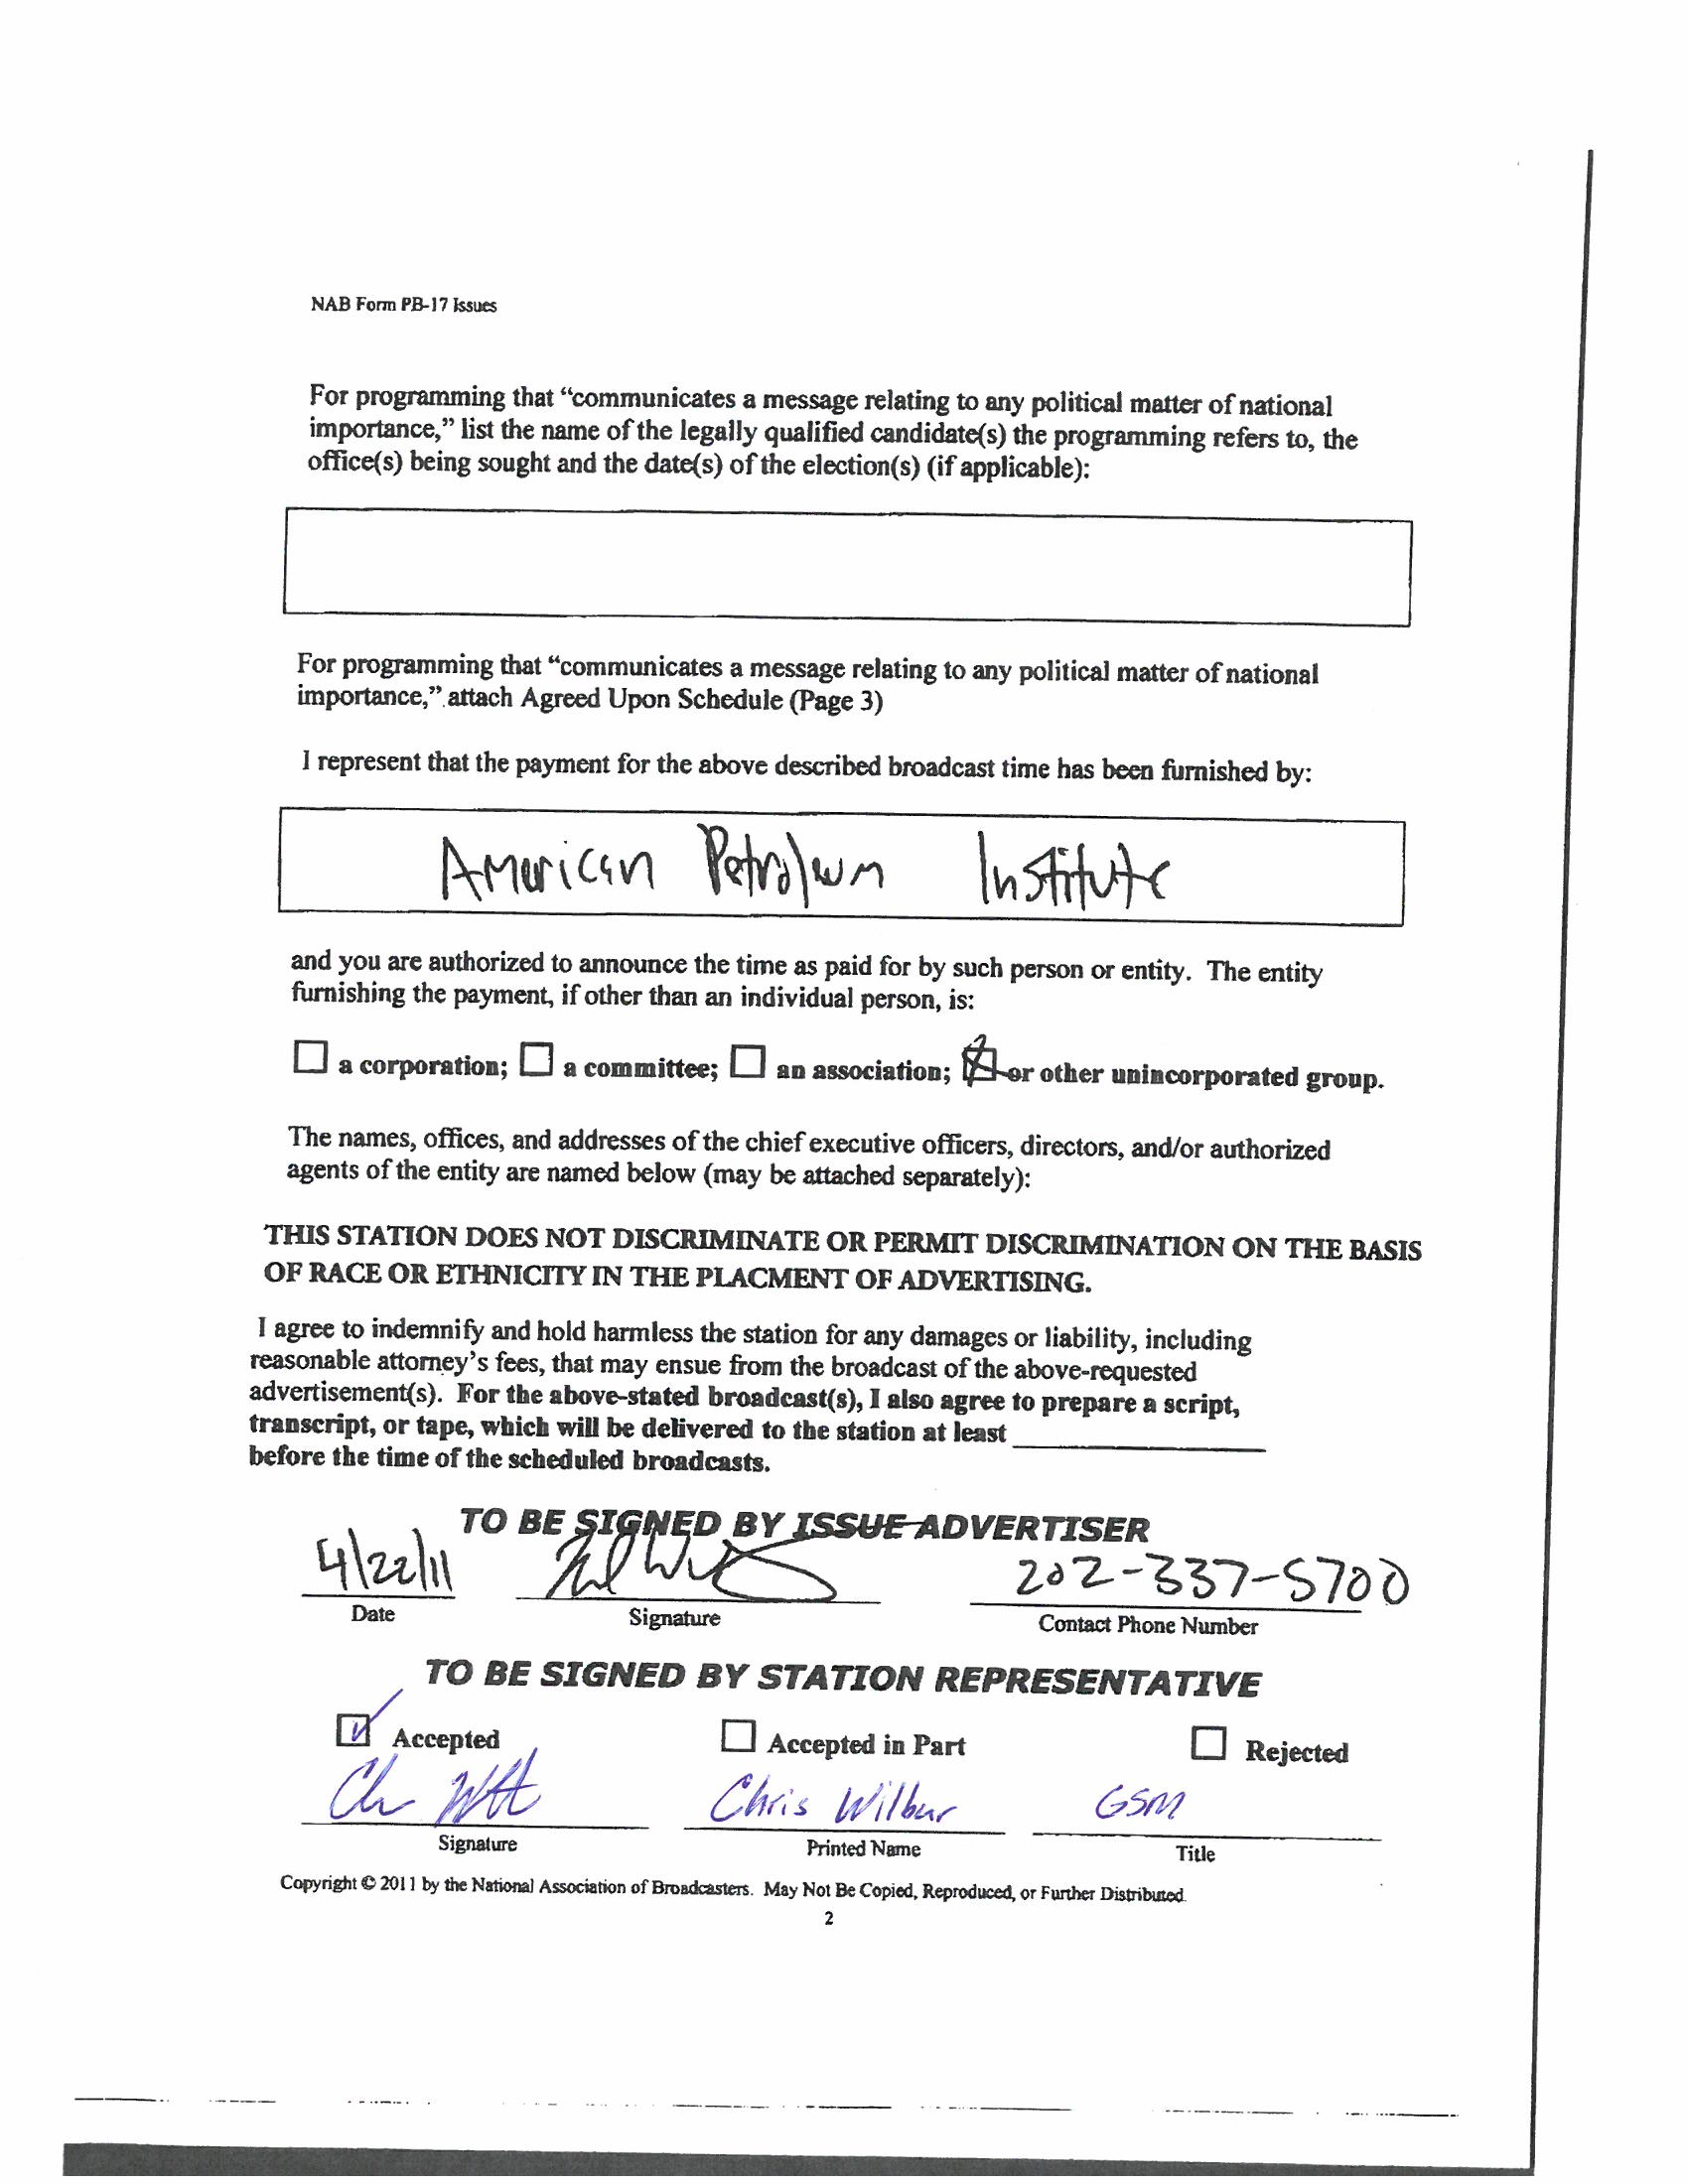 NAB Form PB-17 Issues
For programming that “communicates a message relating to any political matter of national
importance,” list the name of the legally qualified candidate(s) the programming refers to, the
office(s) being sought and the date(s) of the election(s) (if applicable):
For programming that “communicates a message relating to any political matter of national
importance,” attach Agreed Upon Schedule (Page 3)
I represent that the payment for the above described broadcast time has been furnished by:
American Petroleum Institute
and you are authorized to announce the time as paid for by such person or entity. The entity
furnishing the payment, if other than an individual person, is:
a corporation; a committee; an association; or other unincorporated group.
The names, offices, and addresses of the chief executive officers, directors, and/or authorized
agents of the entity are named below (may be attached separately):
THIS STATION DOES NOT DISCRIMINATE OR PERMIT DISCRIMINATION ON THE BASIS
OF RACE OR ETHNICITY IN THE PLACMENT OF ADVERTISING.
I agree to indemnify and hold harmless the station for any damages or liability, including
reasonable attorney’s fees, that may ensue from the broadcast of the above-requested
advertisement(s). For the above-stated broadcast(s), I also agree to prepare a script,
transcript, or tape, which will be delivered to the station at least
before the time of the scheduled broadcasts.
TO BE SIGNED BY ISSUE ADVERTISER
4/22/11 202-337-5700
Date Signature Contact Phone Number
TO BE SIGNED BY STATION REPRESENTATIVE
Accepted Accepted in Part Rejected
Chris Wilbur GSM
Signature Printed Name Title
Copyright © 2011 by the National Association of Broadcasters. May Not Be Copied, Reproduced, or Further Distributed.
2